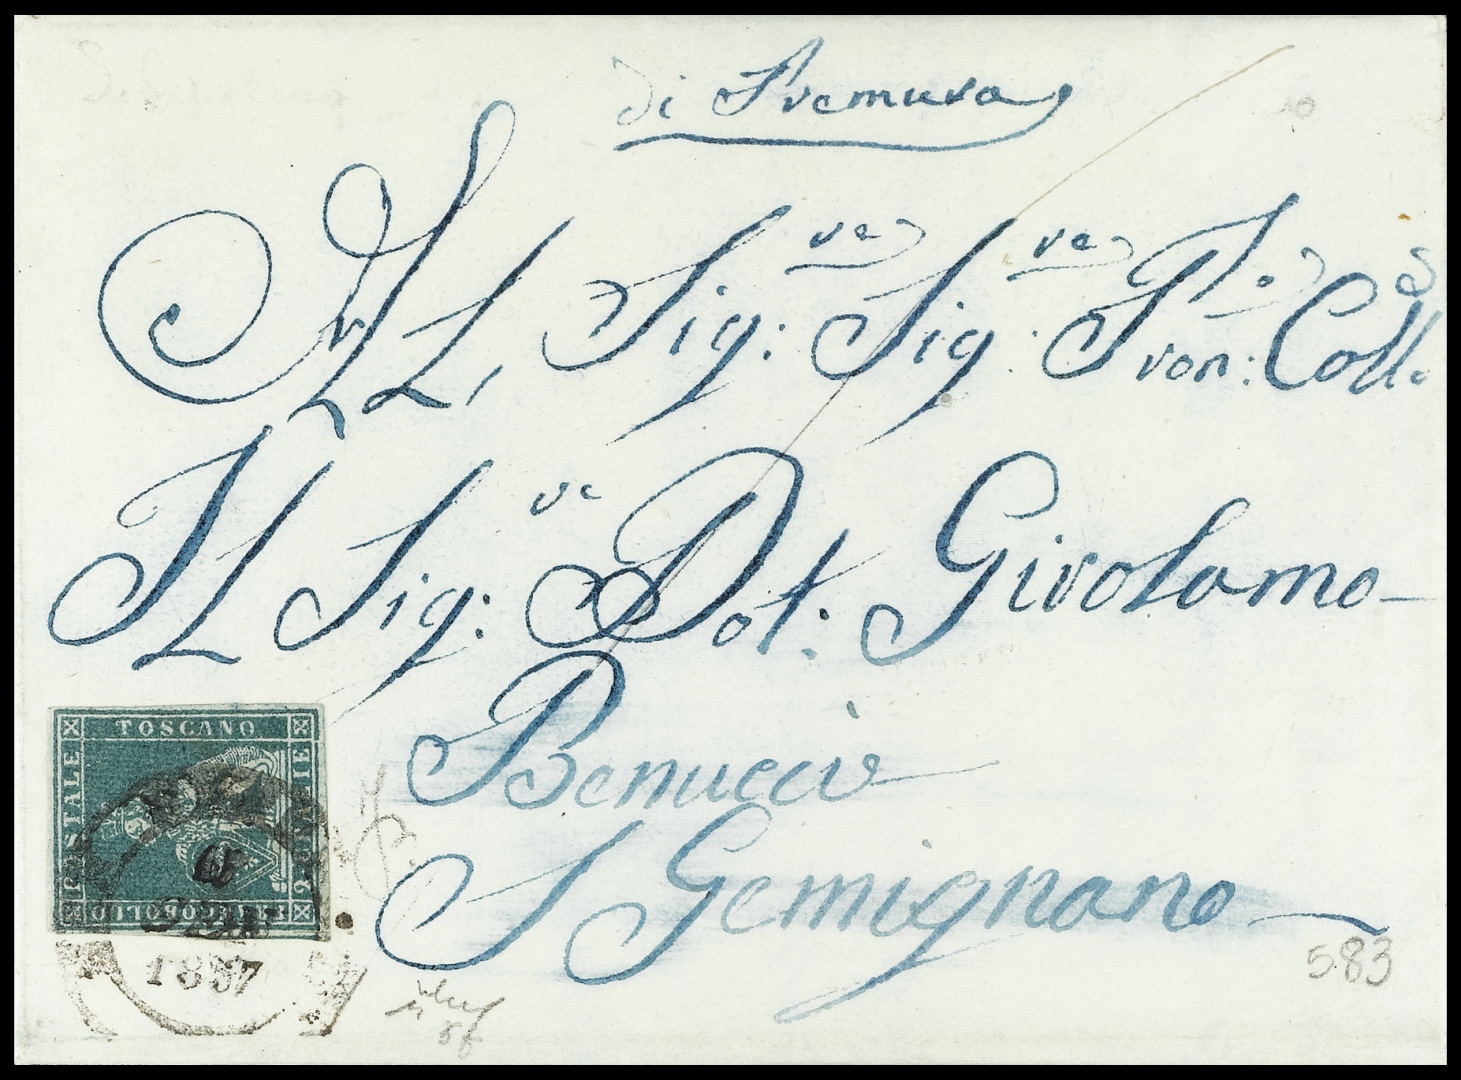 di Premura
All, Sig:re Sig:re Pron: Coll:
Il Sig:re Dot: Girolamo
Benucci
S Gemignano
TOSCANO
POSTALE
FRANCOBOLLO
2 CRAZIE
1857
583